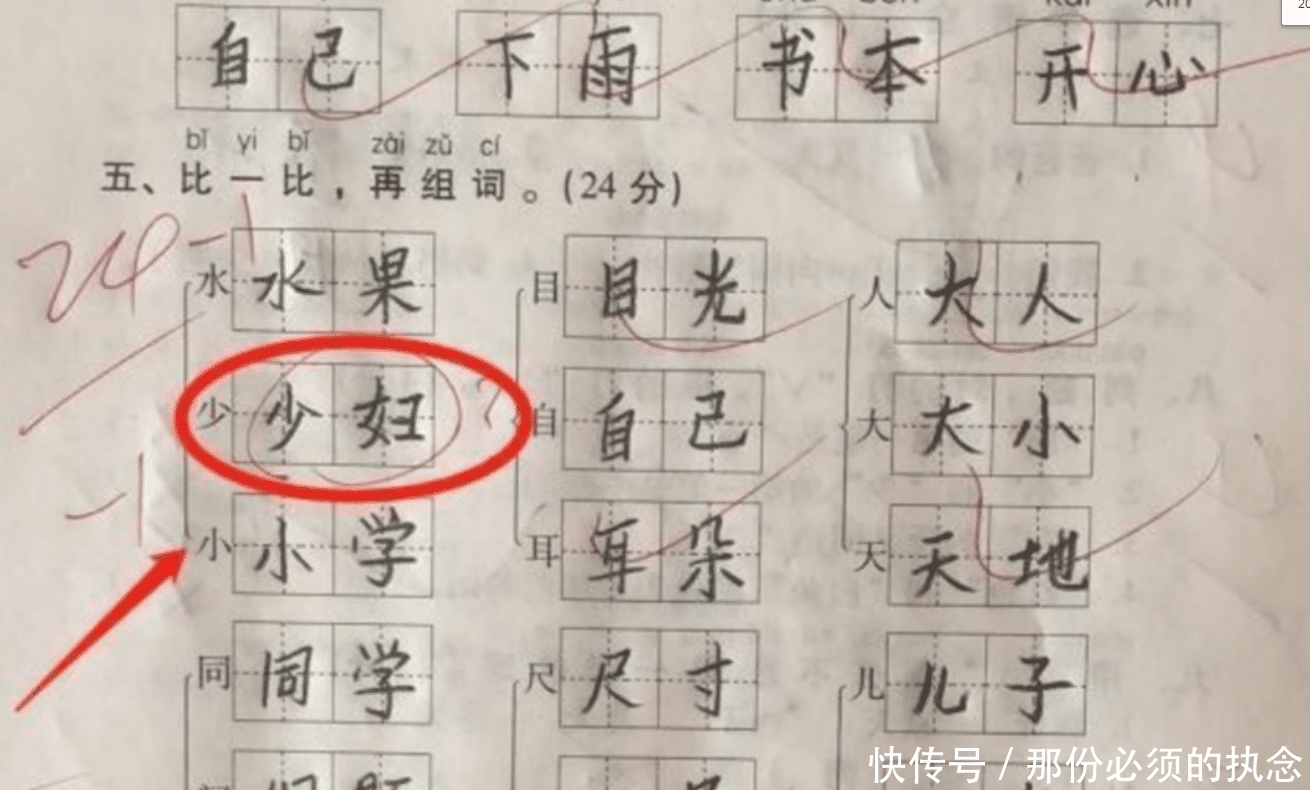 自己 下雨 书本 开心
bǐ yi bǐ zài zǔ cí
五、比一比，再组词。(24分)
24 -1
水 水果 目 目光 人 大人
少 少妇 ? 自 自己 大 大小
-1
小 小学 耳 耳朵 天 天地
同 同学 尺 尺寸 儿 儿子
快传号 / 那份必须的执念